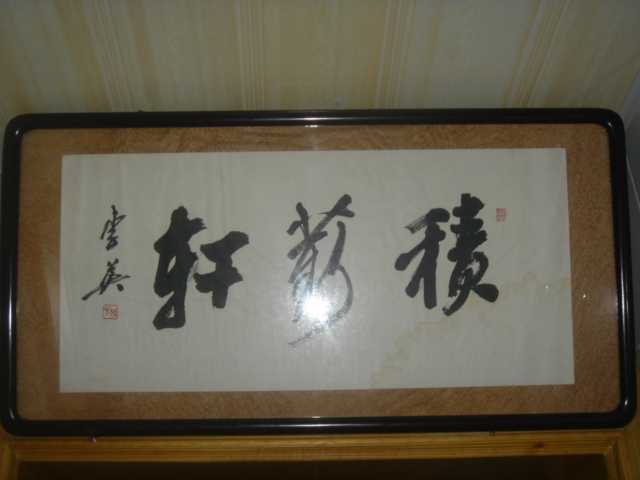 積薪軒
李英